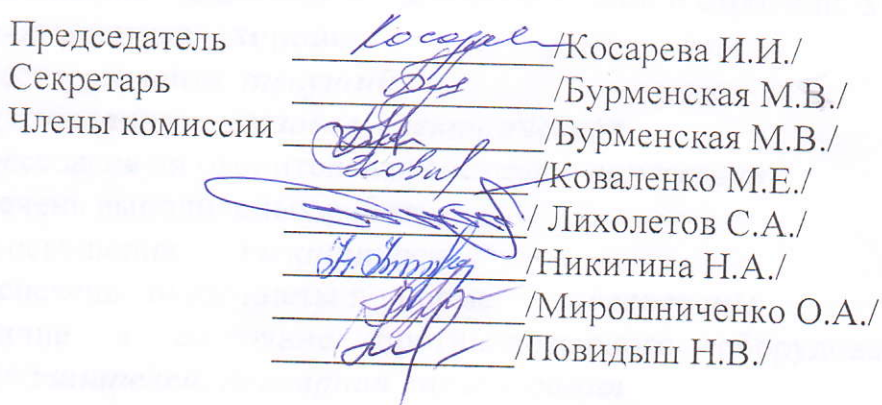 Председатель /Косарева И.И./
Секретарь /Бурменская М.В./
Члены комиссии /Бурменская М.В./
/Коваленко М.Е./
/ Лихолетов С.А./
/Никитина Н.А./
/Мирошниченко О.А./
/Повидыш Н.В./